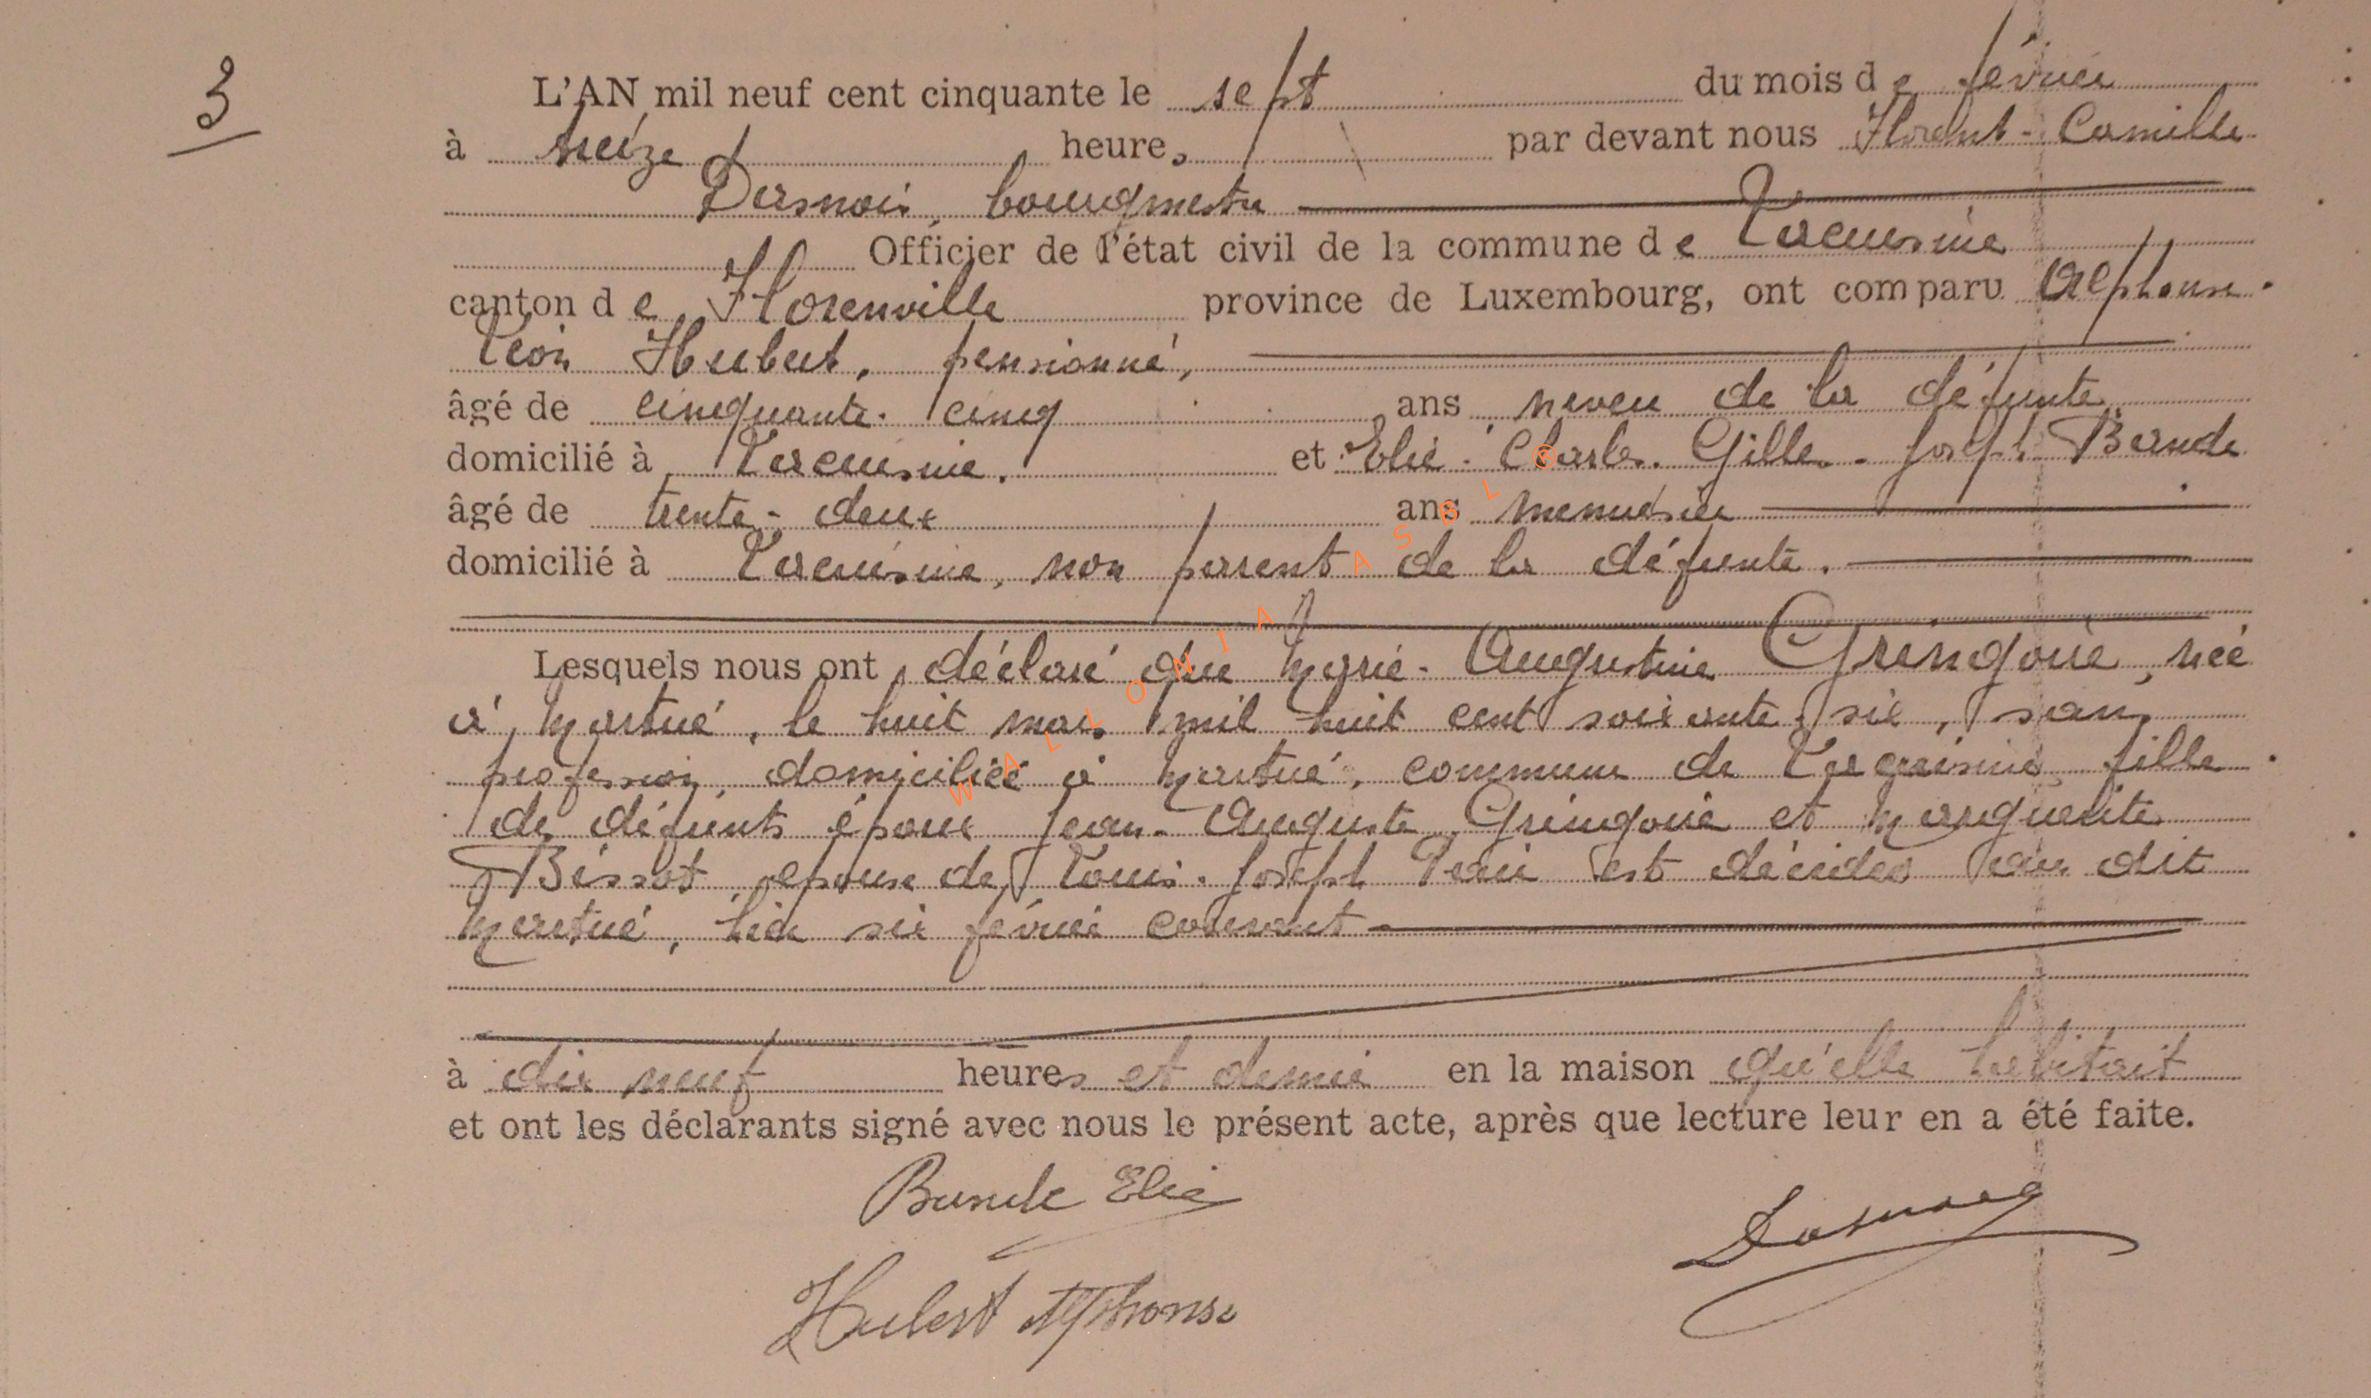 3
L'AN mil neuf cent cinquante le sept du mois de février
à seize heures par devant nous Florent-Camille
Dasnois, bourgmestre
Officier de l'état civil de la commune de Lacuisine
canton de Florenville province de Luxembourg, ont comparu Alphonse-
Léon Hubert, pensionné,
âgé de cinquante-cinq ans, neveu de la défunte
domicilié à Lacuisine. et Elie-Charles-Gilles-Joseph
âgé de trente-deux ans menuisier
domicilié à Lacuisine, non parent de la défunte.
Lesquels nous ont déclaré que Marie-Augustine Gringoire, née
à Martué, le huit mars mil huit cent soixante six, sans
profession, domiciliée à Martué, commune de Lacuisine, fille
des défunts époux Jean-Auguste Gringoire et Marguerite
épouse de Louis-Joseph est décédée au dit
Martué, hier six février courant
à dix neuf heures et demie en la maison qu'elle habitait
et ont les déclarants signé avec nous le présent acte, après que lecture leur en a été faite.
Elie
Hubert Alphonse
WALLONIA ASBL